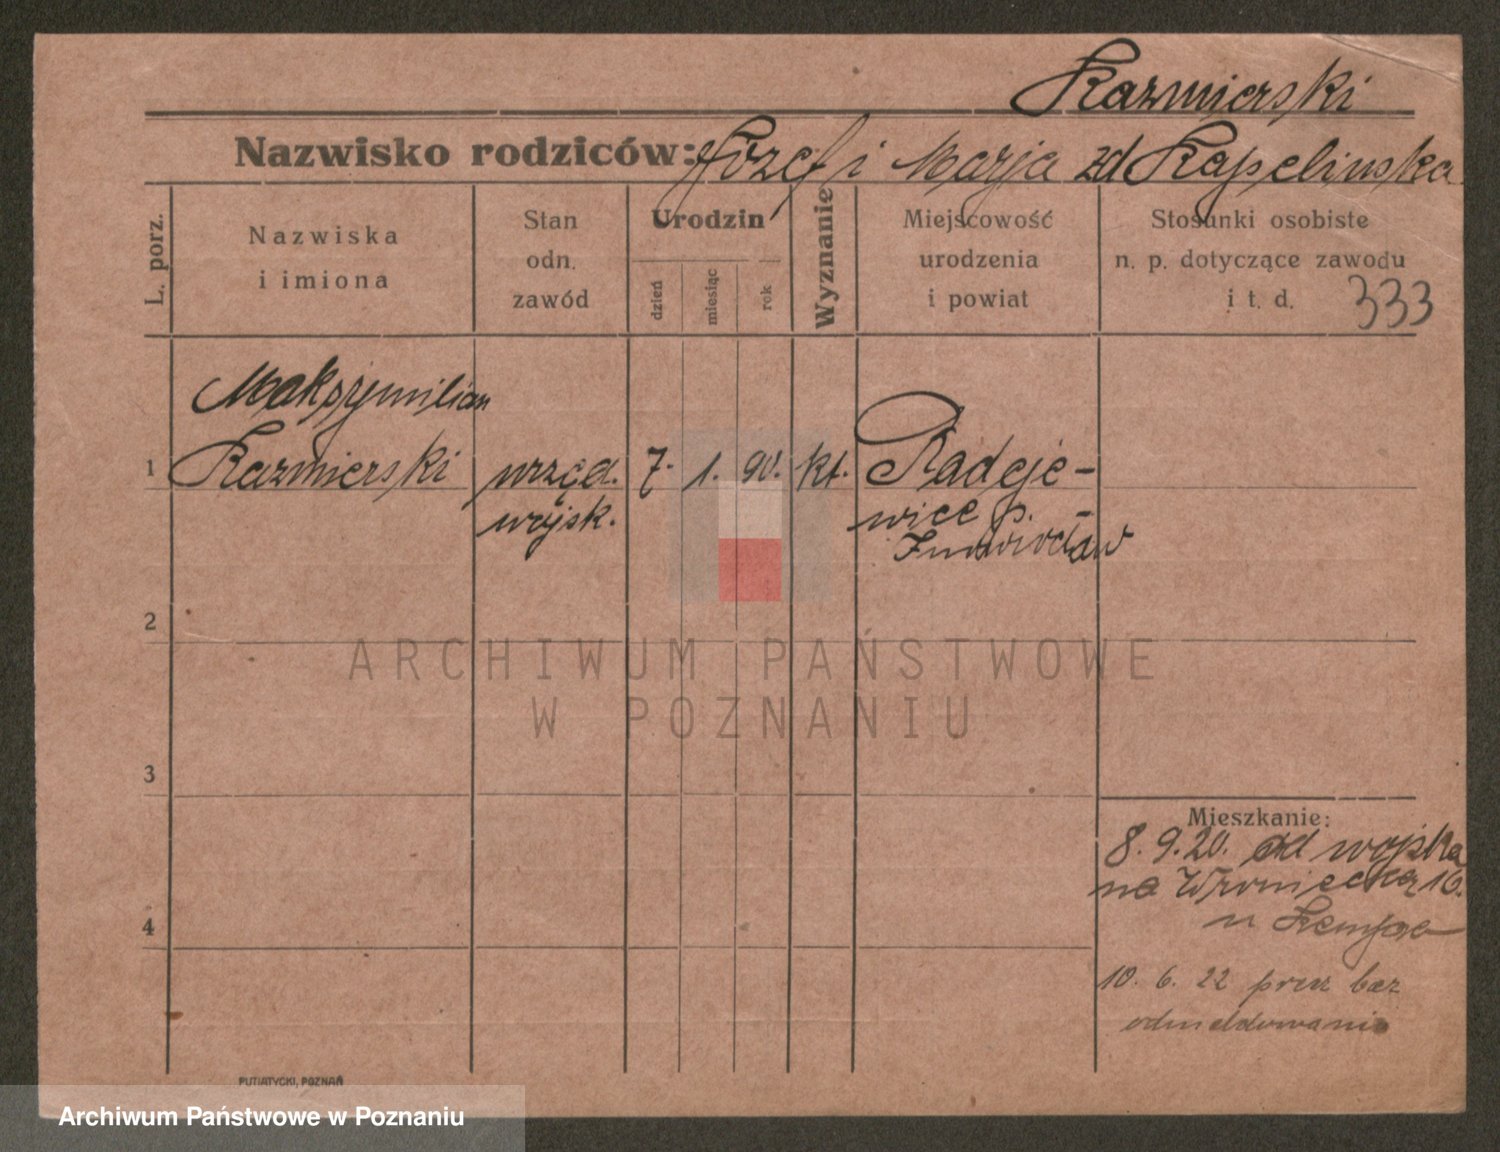 Kazmierski
Nazwisko rodziców: Józef i Marja zd Kapelinska
L. porz.
Nazwiska
i imiona
Stan
odn.
zawód
Urodzin
dzień
miesiąc
rok
Wyznanie
Miejscowość
urodzenia
i powiat
Stosunki osobiste
n. p. dotyczące zawodu
i t. d. 333
Maksymilian
1 Kazmierski urzęd. 7. 1. 90. kt. Radoje-
wojsk. wice p.
Inowrocław
2
3
4
Mieszkanie:
8. 9. 20. od wojska
na Wroniecką 16.
u Kempe
10. 6. 22 prez bez
odmeldowania
PUTIATYCKI, POZNAŃ
ARCHIWUM PAŃSTWOWE
W POZNANIU
Archiwum Państwowe w Poznaniu